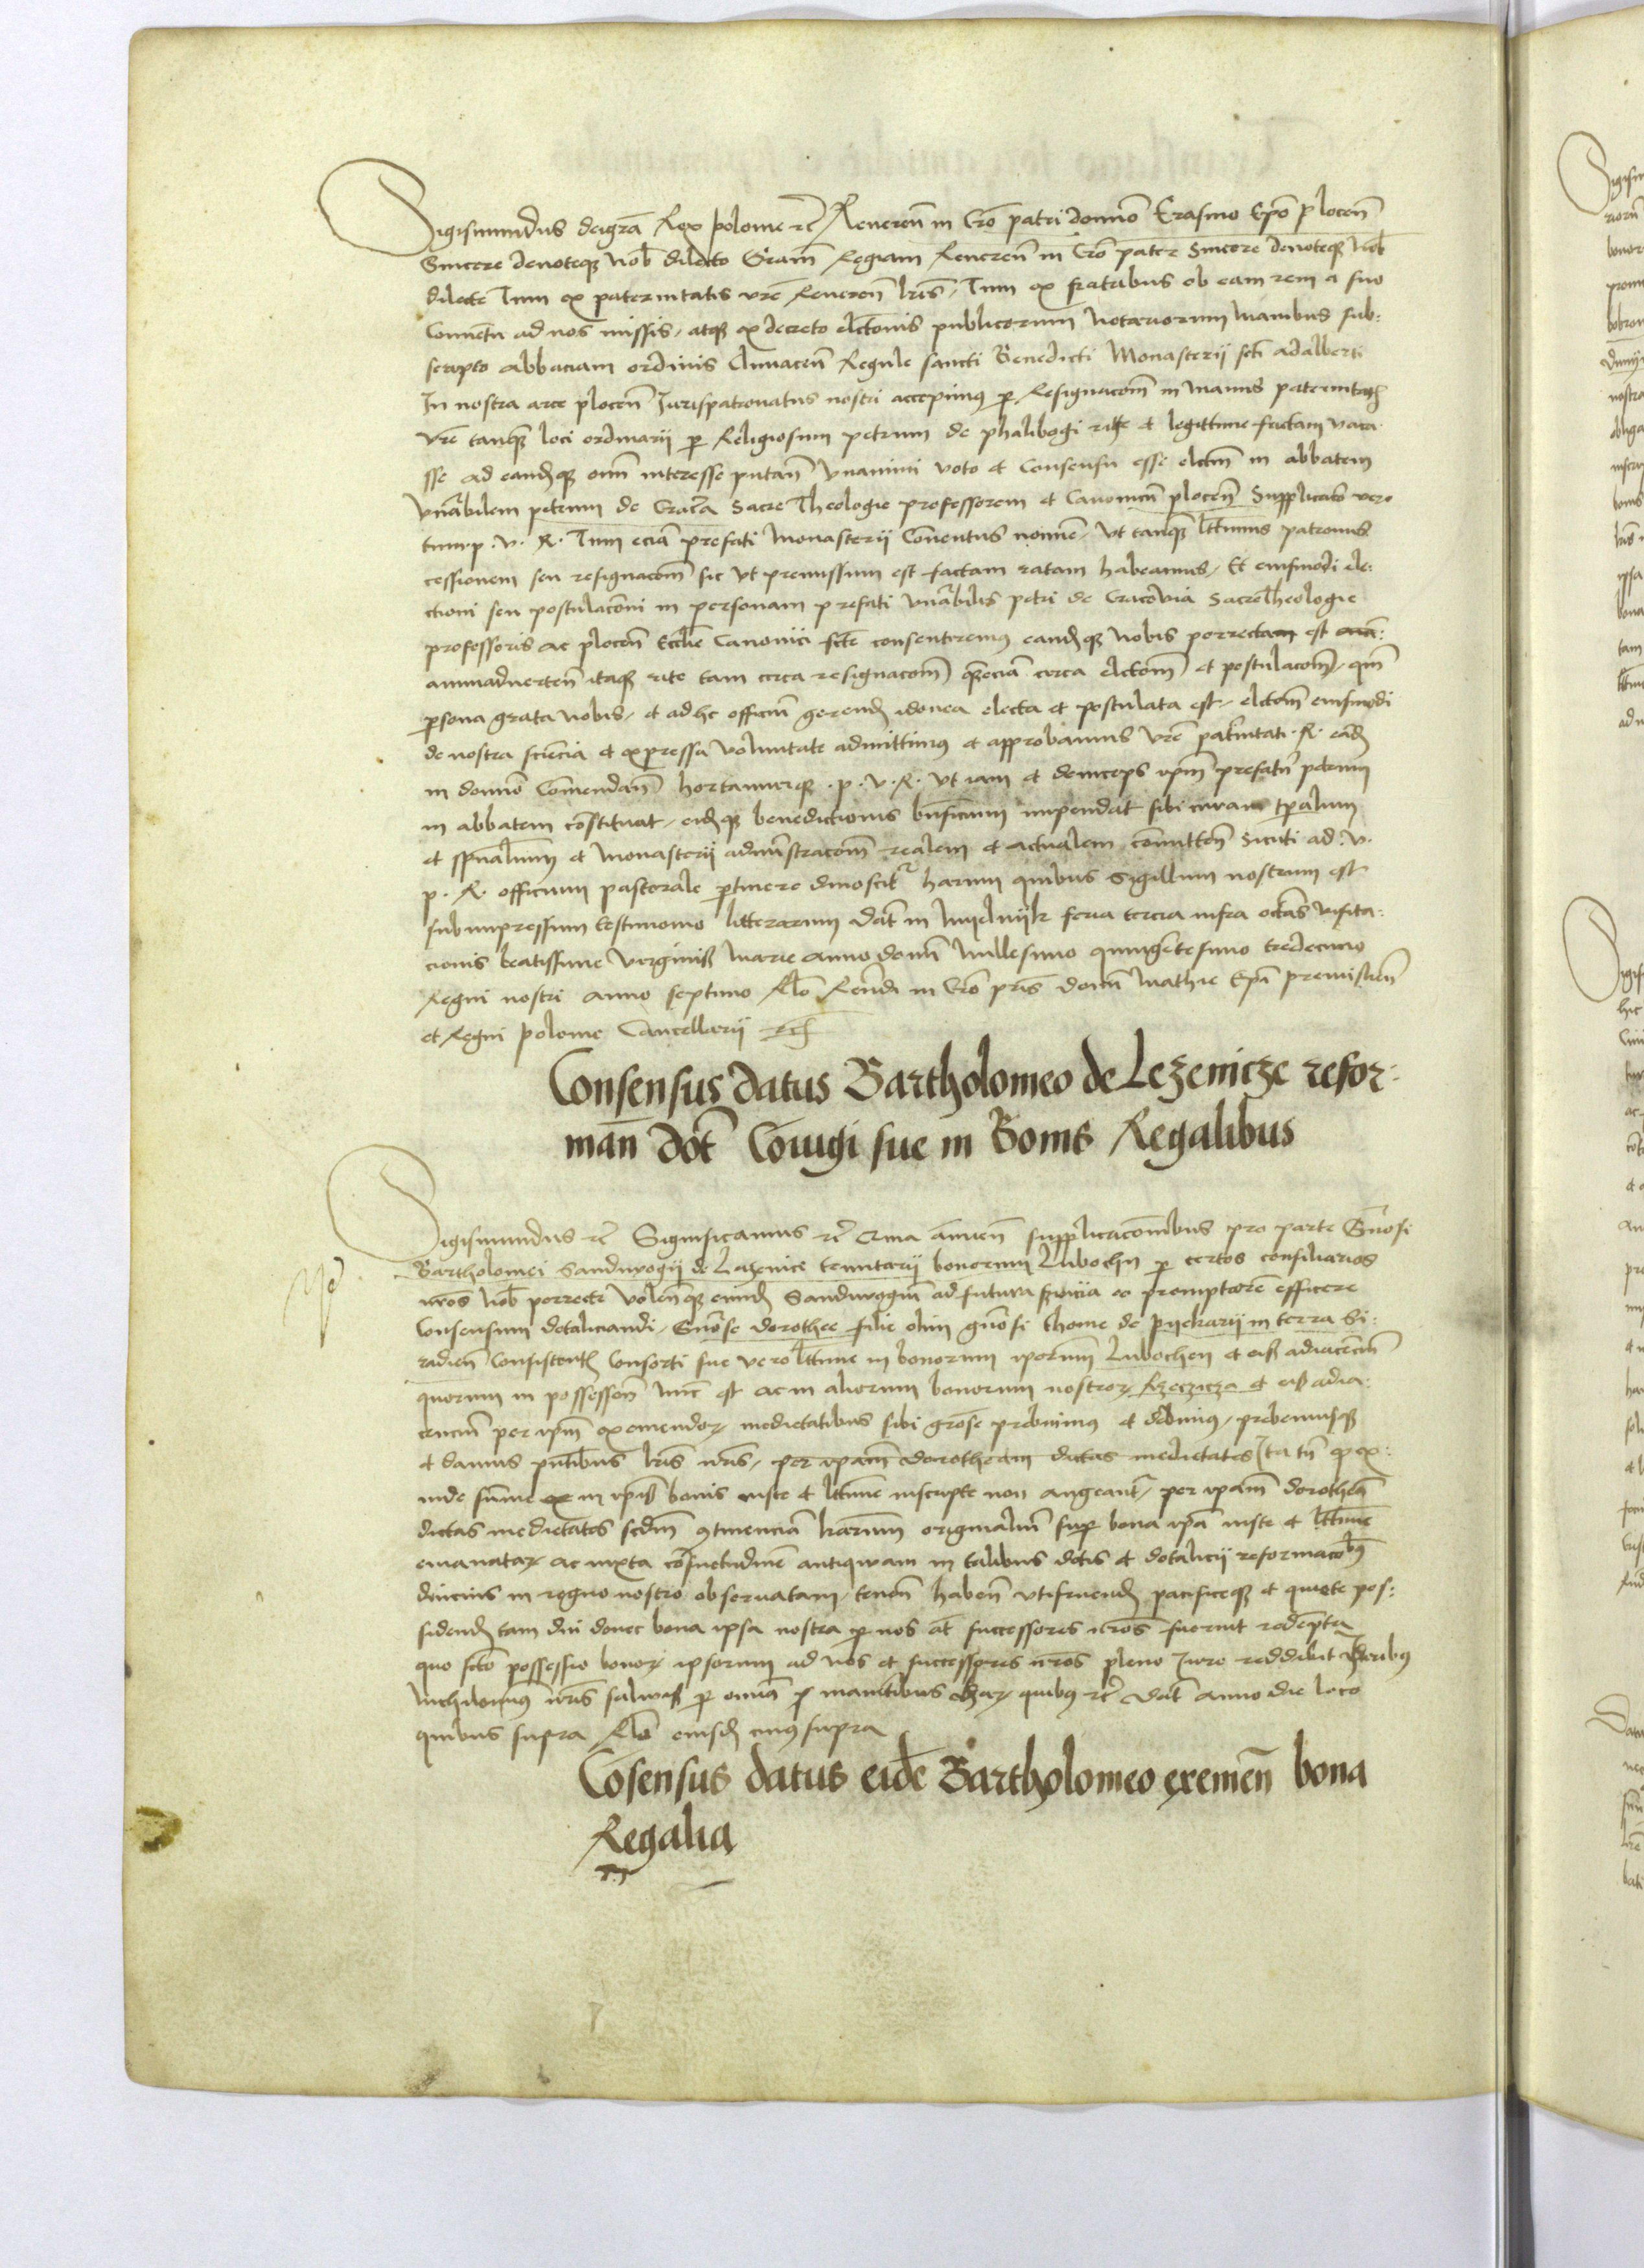 Sigismundus dei gr̃a Rex polonie rc̃ Reueren̄ in Cro patri domno Erasmo Epo plocen̄
Sincere deuoteq nob dilecto Gram̄ Regiam Reueren̄ in Cro pater Sincere deuoteq nob
dilecte Tum ex paternitatis vr̃e Reueren̄ lr̃is, Tum ex fratribus ob eam rem a suo
Conuetu ad nos missis, atq ex decreto elctonis publicorum Notariorum manibus sub:
scripto abbaciam ordinis Cluniacen̄ Regule sancti Benedicti Monasterij scti adalberti
In nostra arce plocen̄ Iurispatronatus nostri accepimus p Resignacom̄ in manus paternitatis
Vr̃e tanq̃ loci ordinarij p Religiosum petrum de phalibogi rite et legittime factam vaca
sse ad eandq̃ om̄ interesse putan̄ vnanimi voto et Consensu esse elctm̄ in abbatem
vn̄abilem petrum de Craco Sacre Theologie professorem et Canonicū plocen̄ Supplicato vero
tum p. v. R. Tum eciā prefati Monasterij Conuentus nomine, Vt tanq̃ lttimus patronus
cessionem seu resignacom̄ sic vt premissum est factam ratam habeamus, Et eiusmodi ele:
ctioni seu postulacōni in personam prefati vn̄abilis petri de Cracovia Sacre Theologie
professoris ac plocen̄ Ecclie Canonici scte consenteremus eandq̃ nobis porrectam est
animaduerten̄ itaq̃ rite tam circa resignacom̄ q̃eciā circa elctom̄ et postulacom̄, qm̄
psona grata nobis, et ad hc officiū gerend̄ idonea electa et postulata est, elctom̄ eiusmodi
de nostra sciēcia et expressa voluntate admittimus et approbamus Vr̃e paternitati. R. eād̄
in domno Comendan̄ hortamurq̃. p. v. R. Vt iam et deinceps ipm̄ prefatū petrum
in abbatem constituat, eidq̃ benedictionis bn̄ficium impendat sibi curam tp̄alium
et sp̄ualium et Monasterij administracom̄ realem et actualem committen̄ Sicuti ad. v.
p. R. officium pastorale ptinere dinoscit̃ harum quibus Sigillum nostrum est
subimpressum testimonio litterarum dat̃ in feria tercia infra octas visita:
cionis beatissime Virginis Marie anno domini Millesimo quingentesimo tredecimo
Regni nostri anno septimo Rl̃o Ren̄di in Cro pris domni Mathie Epi premislien̄
et Regni polonie Cancellarij rc̃
Consensus datus Bartholomeo de Lezenicze refor:
man̄ dot̄ Coiugi sue in Bonis Regalibus
Sigismundus rc̃ Significamus rc̃ Qma annuen̄ supplicacōnibus pro parte Gn̄osi
Bartholomei Sandiuogij de Lazenice tenutarij bonorum Lubochn p certos consiliarios
nr̃os nob porrecte volen̄q̃ eund̄ Sandiuogiū ad futura suicia eo promptiorē efficere
Consensum dotaliciandi, Gn̄ose dorothee filie olim gn̄osi thome de pyekarij in terra Si:
radien̄ Consistente Consorti sue vero lttime in bonorum ipōrum Lubochen et eis adiacēciū
quorum in possessiōn nūc est ac in aliorum bonorum nostrorꝝ Rzeczicza et eis adia:
cenciū per ipm̄ exemendorꝝ medietatibus sibi grose prebuimus et dedimus, prebemusq̃
et damus pn̄tibus lr̃is nr̃is, per ipam̄ dorotheam dictas medietates Ita tn̄ q ex:
inde sum̄e in ipis bonis iuste et lttime inscripte non augeant̃, per ipam̄ dorotheā
dictas medietates scdm̄ ꝯtinenciā lrarum originaliū sup bona ipa iuste et lttime
emanatarꝝ ac iuxta cōsuetudinē antiquam in talibus dotis et dotalicij reformacōibꝯ
diucius in regno nostro obseruatam, tenen̄ haben̄ vtifruend̄ pacificeq̃ et quiete pos:
sidend̄ tam diu donec bona ipsa nostra p nos at successores nr̃os fuerint redempta
quo scto possessio bonorꝝ ipsorum ad nos et successores nr̃os pleno Iure reddibit Iuribus
Nichilominus nr̃is saluis p omnia p̄manentibus harꝝ quibus rc̃ dat̃ anno die loco
quibus supra Rl̃o eiusd̄ cuius supra
Cosensus datus eidē Bartholomeo exemen̄ bona
Regalia